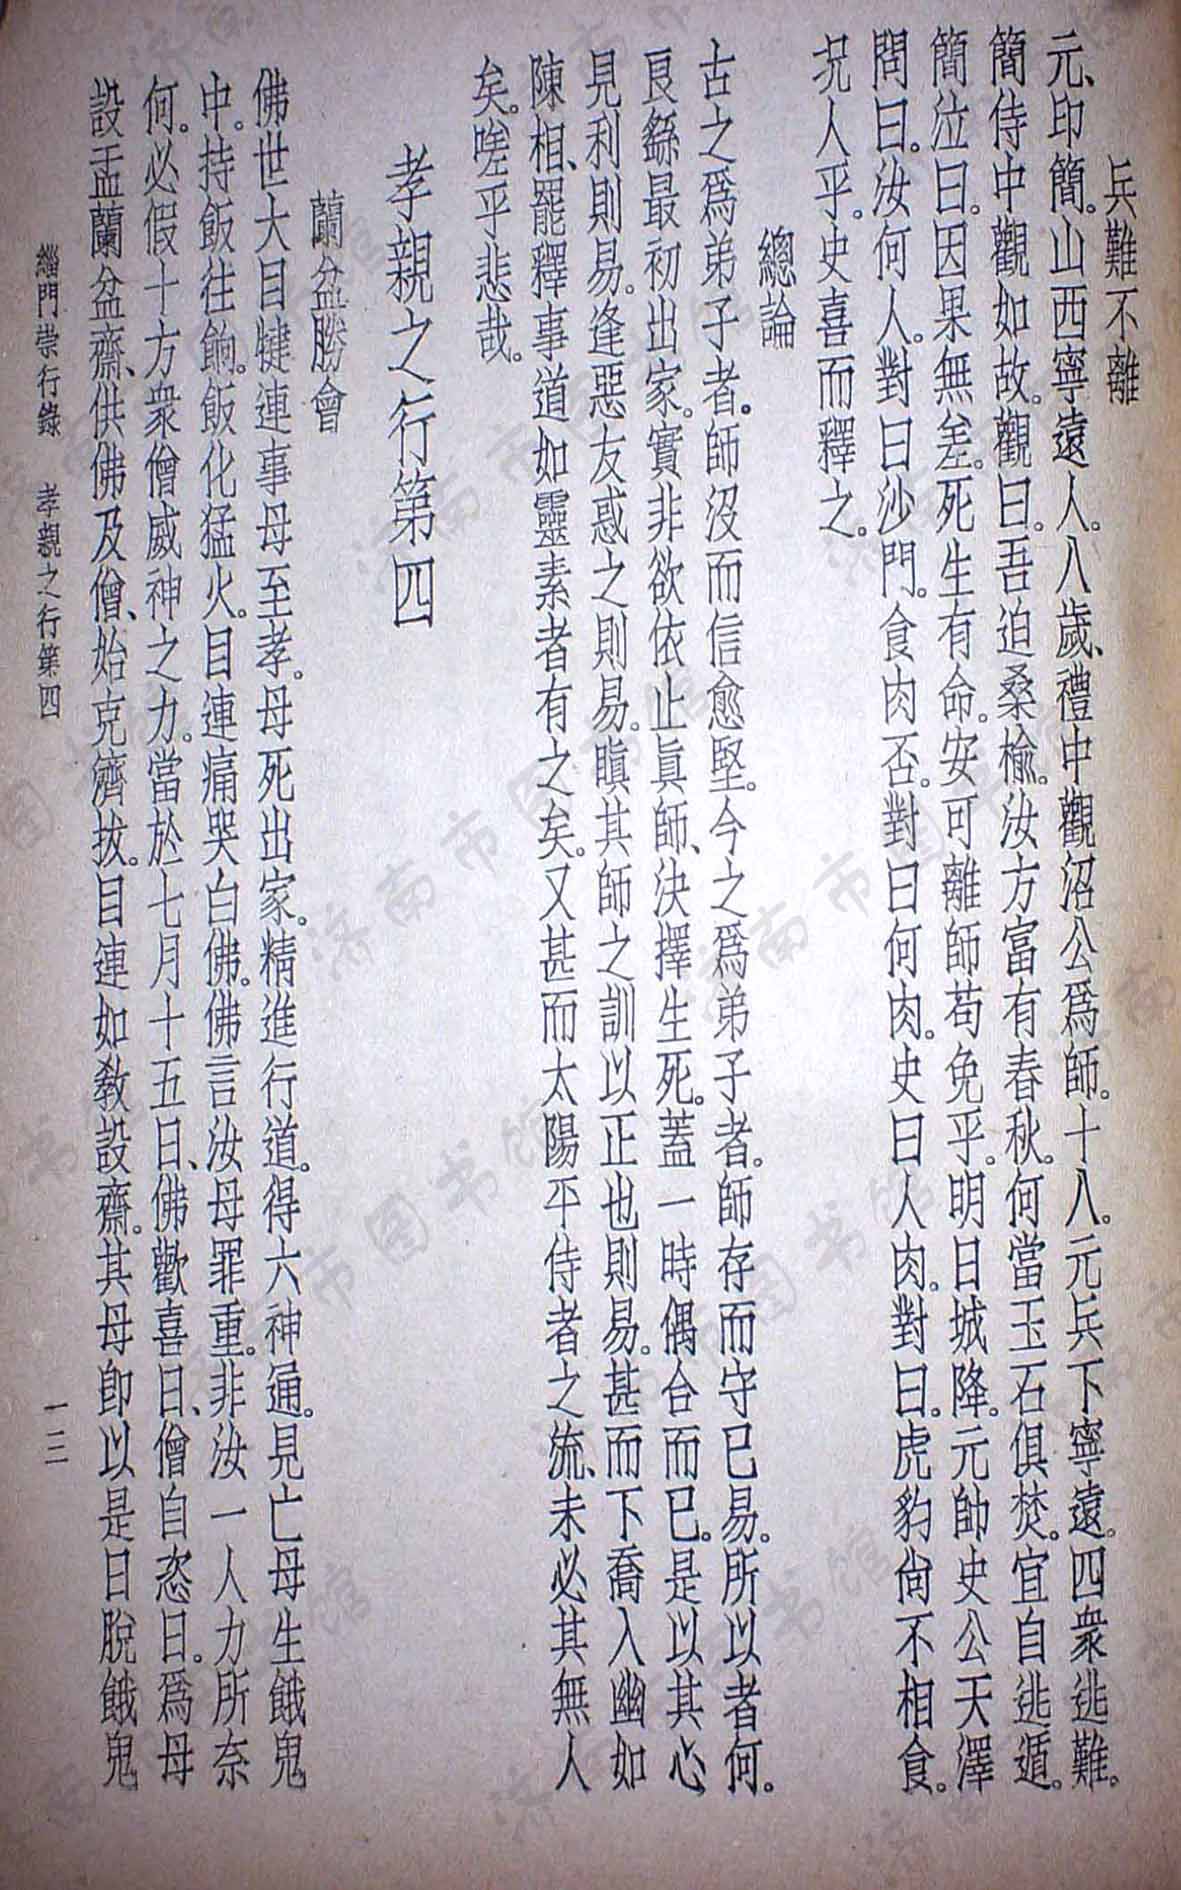 兵難不離
元、印簡。山西寧遠人。八歲、禮中觀沼公爲師。十八。元兵下寧遠。四衆逃難。
簡侍中觀如故。觀曰。吾迫桑榆。汝方富有春秋。何當玉石俱焚。宜自逃遁。
簡泣曰。因果無差。死生有命。安可離師苟免乎。明日城降。元帥史公天澤
問曰。汝何人。對曰沙門。食肉否。對曰何肉。史曰人肉。對曰。虎豹尙不相食。
況人乎。史喜而釋之。
總論
古之爲弟子者。師沒而信愈堅。今之爲弟子者。師存而守已易。所以者何。
良繇最初出家。實非欲依止眞師、決擇生死。蓋一時偶合而已。是以其心
見利則易。逢惡友惑之則易。瞋其師之訓以正也則易。甚而下喬入幽如
陳相、罷釋事道如靈素者有之矣。又甚而太陽平侍者之流、未必其無人
矣。嗟乎悲哉。
孝親之行第四
蘭盆勝會
佛世大目犍連事母至孝。母死出家。精進行道。得六神通。見亡母生餓鬼
中。持飯往餉。飯化猛火。目連痛哭白佛。佛言汝母罪重。非汝一人力所奈
何。必假十方衆僧威神之力。當於七月十五日、佛歡喜日、僧自恣日。爲母
設盂蘭盆齋、供佛及僧、始克濟拔。目連如敎設齋。其母卽以是日脫餓鬼
緇門崇行錄　孝親之行第四　一三
济南市图书馆